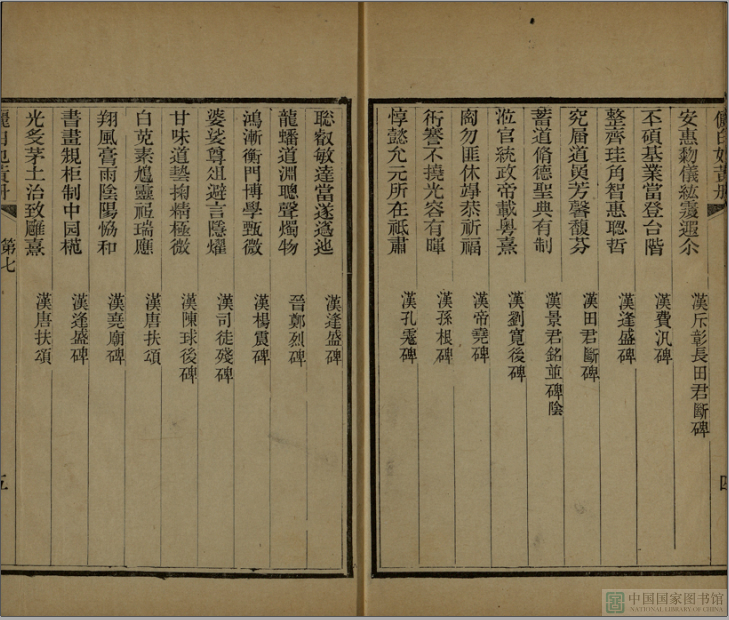 安惠儀遐 漢斥彰長田君斷碑
丕碩基業當登台階 漢費汎碑
整齊珪角智惠聰哲 漢逢盛碑
究道奧芳馨馥芬 漢田君斷碑
蓄道脩德聖典有制 漢景君銘並碑陰
涖官統政帝載粵熹 漢劉寬後碑
勿匪休竫恭祈福 漢帝堯碑
謇不撓光容有暉 漢孫根碑
惇懿允元所在祗肅 漢孔碑
四
聡叡敏達當遂逶迆 漢逢盛碑
龍蟠道淵聰聲燭物 晉鄭烈碑
鴻漸衡門博學甄微 漢楊震碑
婆娑尊俎避言隱燿 漢司徒殘碑
甘味道藝掬精極微 漢陳球後碑
白菟素鳩靈祗瑞應 漢唐扶頌
翔風膏雨陰陽恊和 漢堯廟碑
書畫規柜制中园 漢逢盛碑
光茅土治致雝熹 漢唐扶頌
第七
五
中国国家图书馆
NATIONAL LIBRARY OF CHINA